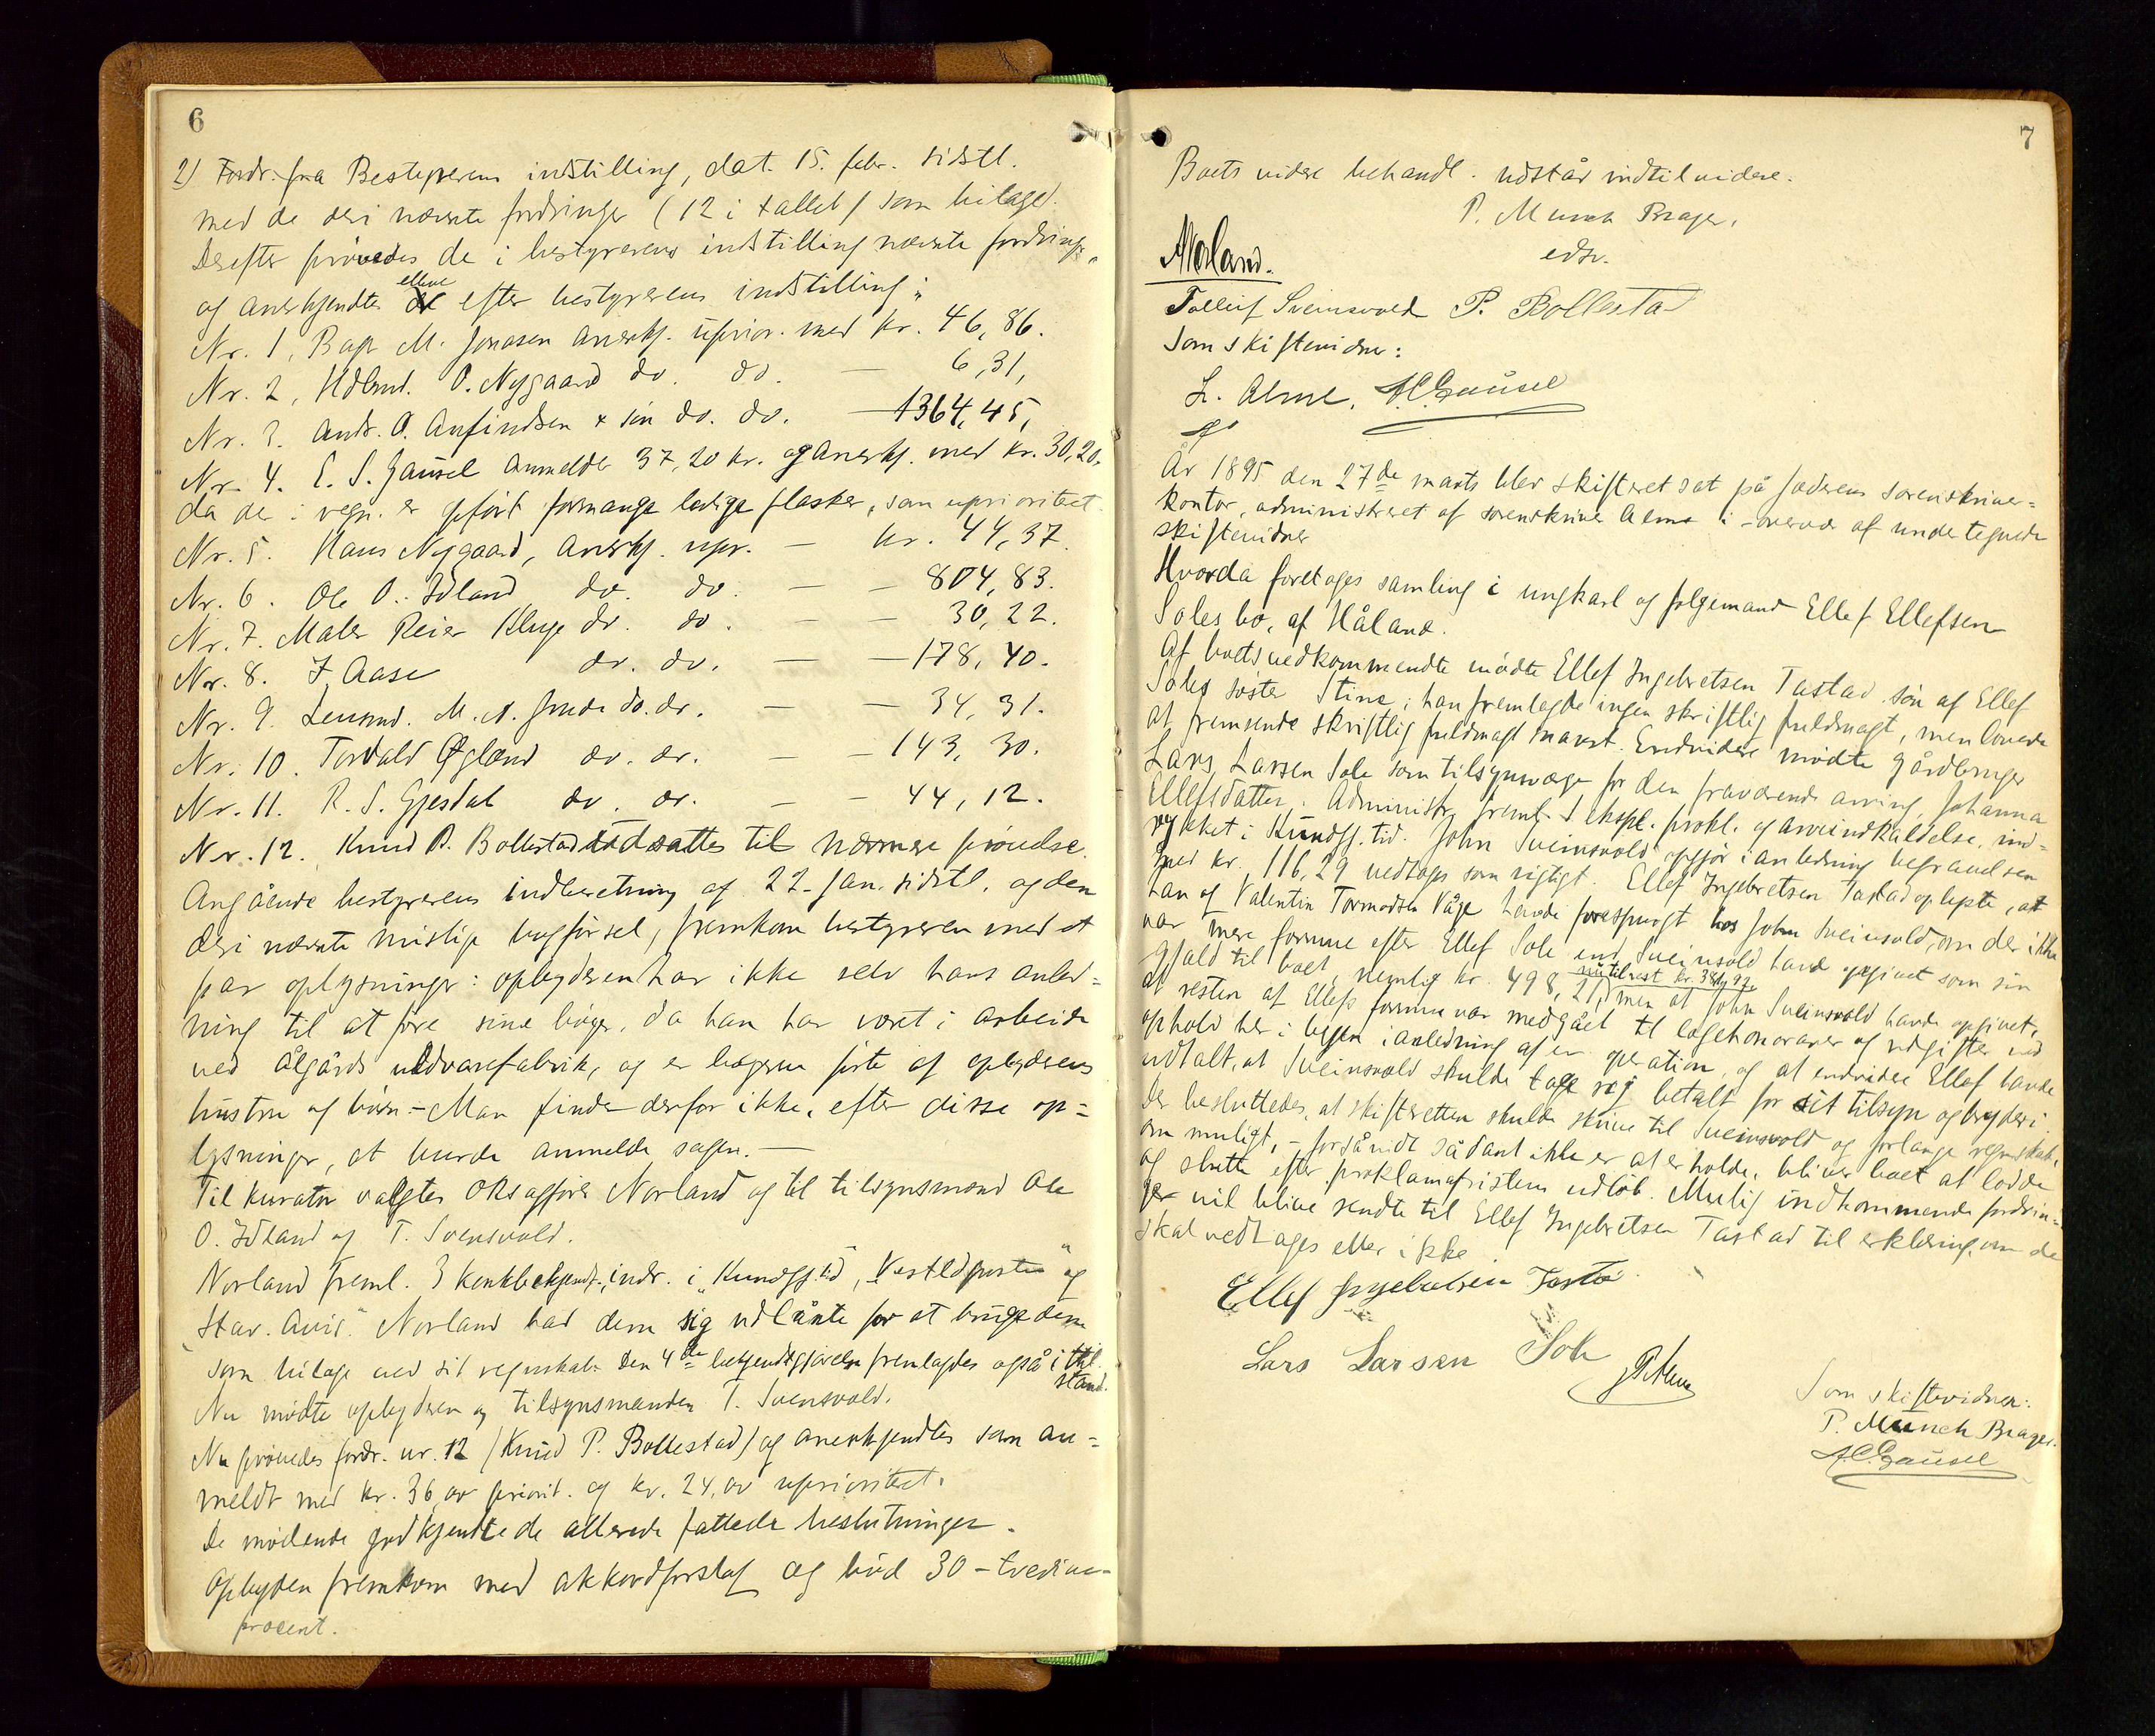 6
2) Fordr. fra Bestyrerens indstilling, dat. 15. febr. sidstl.
med de deri nævnte fordringer (12 i tallet) som bilaged.
Derefter prövedes de i bestyrerens indstilling nævnte fordring,
og anerkjendtes elleve efter bestyrerens indstilling:
Nr. 1, M. Jonasen anerkj. uprior. med kr. 46,86.
Nr. 2, Hdlsmd. O. Nygaard do. do. — 6,31,
Nr. 3. Andr. O. Anfindsen & sön do. do. — 1364,45,
Nr. 4. E. S. Gausel anmeldt 37,20 kr. og anerkj. med kr. 30,20,
da der i regn. er opfört formange ledige flasker, som uprioritet.
Nr. 5. Hans Nygaard, anerkj. upr. — kr. 44,37.
Nr. 6. Ole O. Idland do. do. — — 804,83.
Nr. 7. Maler Reier Kluge do. do. — — 30,22.
Nr. 8. J. Aase do. do. — — 178,40.
Nr. 9. Lensmd. M. A. Grude do. do. — — 34,31.
Nr. 10. Torvald Øgland do. do. — — 143,30.
Nr. 11. R. S. Gjesdal do. do. — — 44,12.
Nr. 12. Knud P. Bollestad udsattes til nærmere prövelse.
Angående bestyrerens indberetning af 22. jan. sidstl. og den
deri nævnte mislige bogförsel, fremkom bestyreren med et
par oplysninger: opbyderen har ikke selv havt anled=
ning til at före sine böger, da han har været i arbeide
ved Ålgårds uldvarefabrik, og er bögerne förte af opbyderens
hustru og börn. – Man finder derfor ikke, efter disse op=
lysninger, at burde anmelde sagen. —
Til kurator valgtes Oksagförer Norland og til tilsynsmænd Ole
O. Idland og T. Svensvold.
Norland freml. 3 konkbekjendt. indr. i "Kundgj. tid", "Vestldposten" og
Stav. Avis". Norland bad dem sig udlånte for at bruge dem
som bilage ved sit regnskab. Den 4de bekjendtgjörelse fremlagdes også i til
stand.
Nu mödte opbyderen og tilsynsmanden T. Svensvold.
Nu prövedes fordr. nr. 12 (Knud P. Bollestad) og anerkjendtes som an=
meldt med kr. 36,00 priorit. og kr. 24,00 uprioritet.
De mödende godkjendte de allerede fattede beslutninger.
Opbyden fremkom med akkordforslag og böd 30 – tredive –
procent.
7
Boets videre behandl. udstår indtil videre.
P. Munch Brager,
edsv.
Norland.
Tolleif Sveinsvold P. Bollesta
Som skiftevidner:
L. Alme. A. C. Gausel
År 1895 den 27de marts blev skifteret sat på Jæderens sorenskriver=
kontor, administreret af sorenskriver Alme i overvær af undertegnede
skiftevidner
Hvorda foretages samling i ungkarl og fölgemand Ellef Ellefsen
Soles bo, af Håland.
Af boets vedkommende mödte Ellef Ingebretsen Tastad sön af Ellef
Soles söster Stine; han fremlagde ingen skriftlig fuldmagt, men lovede
at fremsende skriftlig fuldmagt snarest. Endvidere mödte gårdbruger
Lars Larsen Sole som tilsynsværge for den fraværende arving Johanna
Ellefsdatter. Administr. freml. 1 expl. prokl. og arveindkaldelse, ind=
rykket i Kundgj. tid. John Sveinsvolds opgjör i anledning begravelsen
med kr. 116,29 vedtoges som rigtigt. Ellef Ingebretsen Tastad oplyste, at
han og Valentin Tormodsen Våge havde forespurgt hos John Sveinsvold, om der ikke
var mere formue efter Ellef Sole end Sveinsvold havde opgivet som sin
gjæld til boet, nemlig kr. 498,21, nu tilrest kr. 381,92, men at John Sveinsvold havde opgivet,
at resten af Ellefs formue var medgået til lægehonorarer og udgifter ved
ophold her i byen i anledning af en operation, og at endvidere Ellef havde
udtalt, at Sveinsvold skulde tage sig betalt for sit tilsyn og bryderi.
Der besluttedes, at skifteretten skulde skrive til Sveinsvold og forlange regnskab,
om muligt, – forsåvidt sådant ikke er at erholde, bliver boet at lodde
og slutte efter proklamafristens udlöb. Mulig indkommende fordrin=
ger vil blive sendte til Ellef Ingebretsen Tastad til erklæring, om de
skal vedtages eller ikke.
Ellef Ingebretsen Tasta
Lars Larsen Sole
Som skiftevidner:
P. Munch Brager.
A. C. Gausel